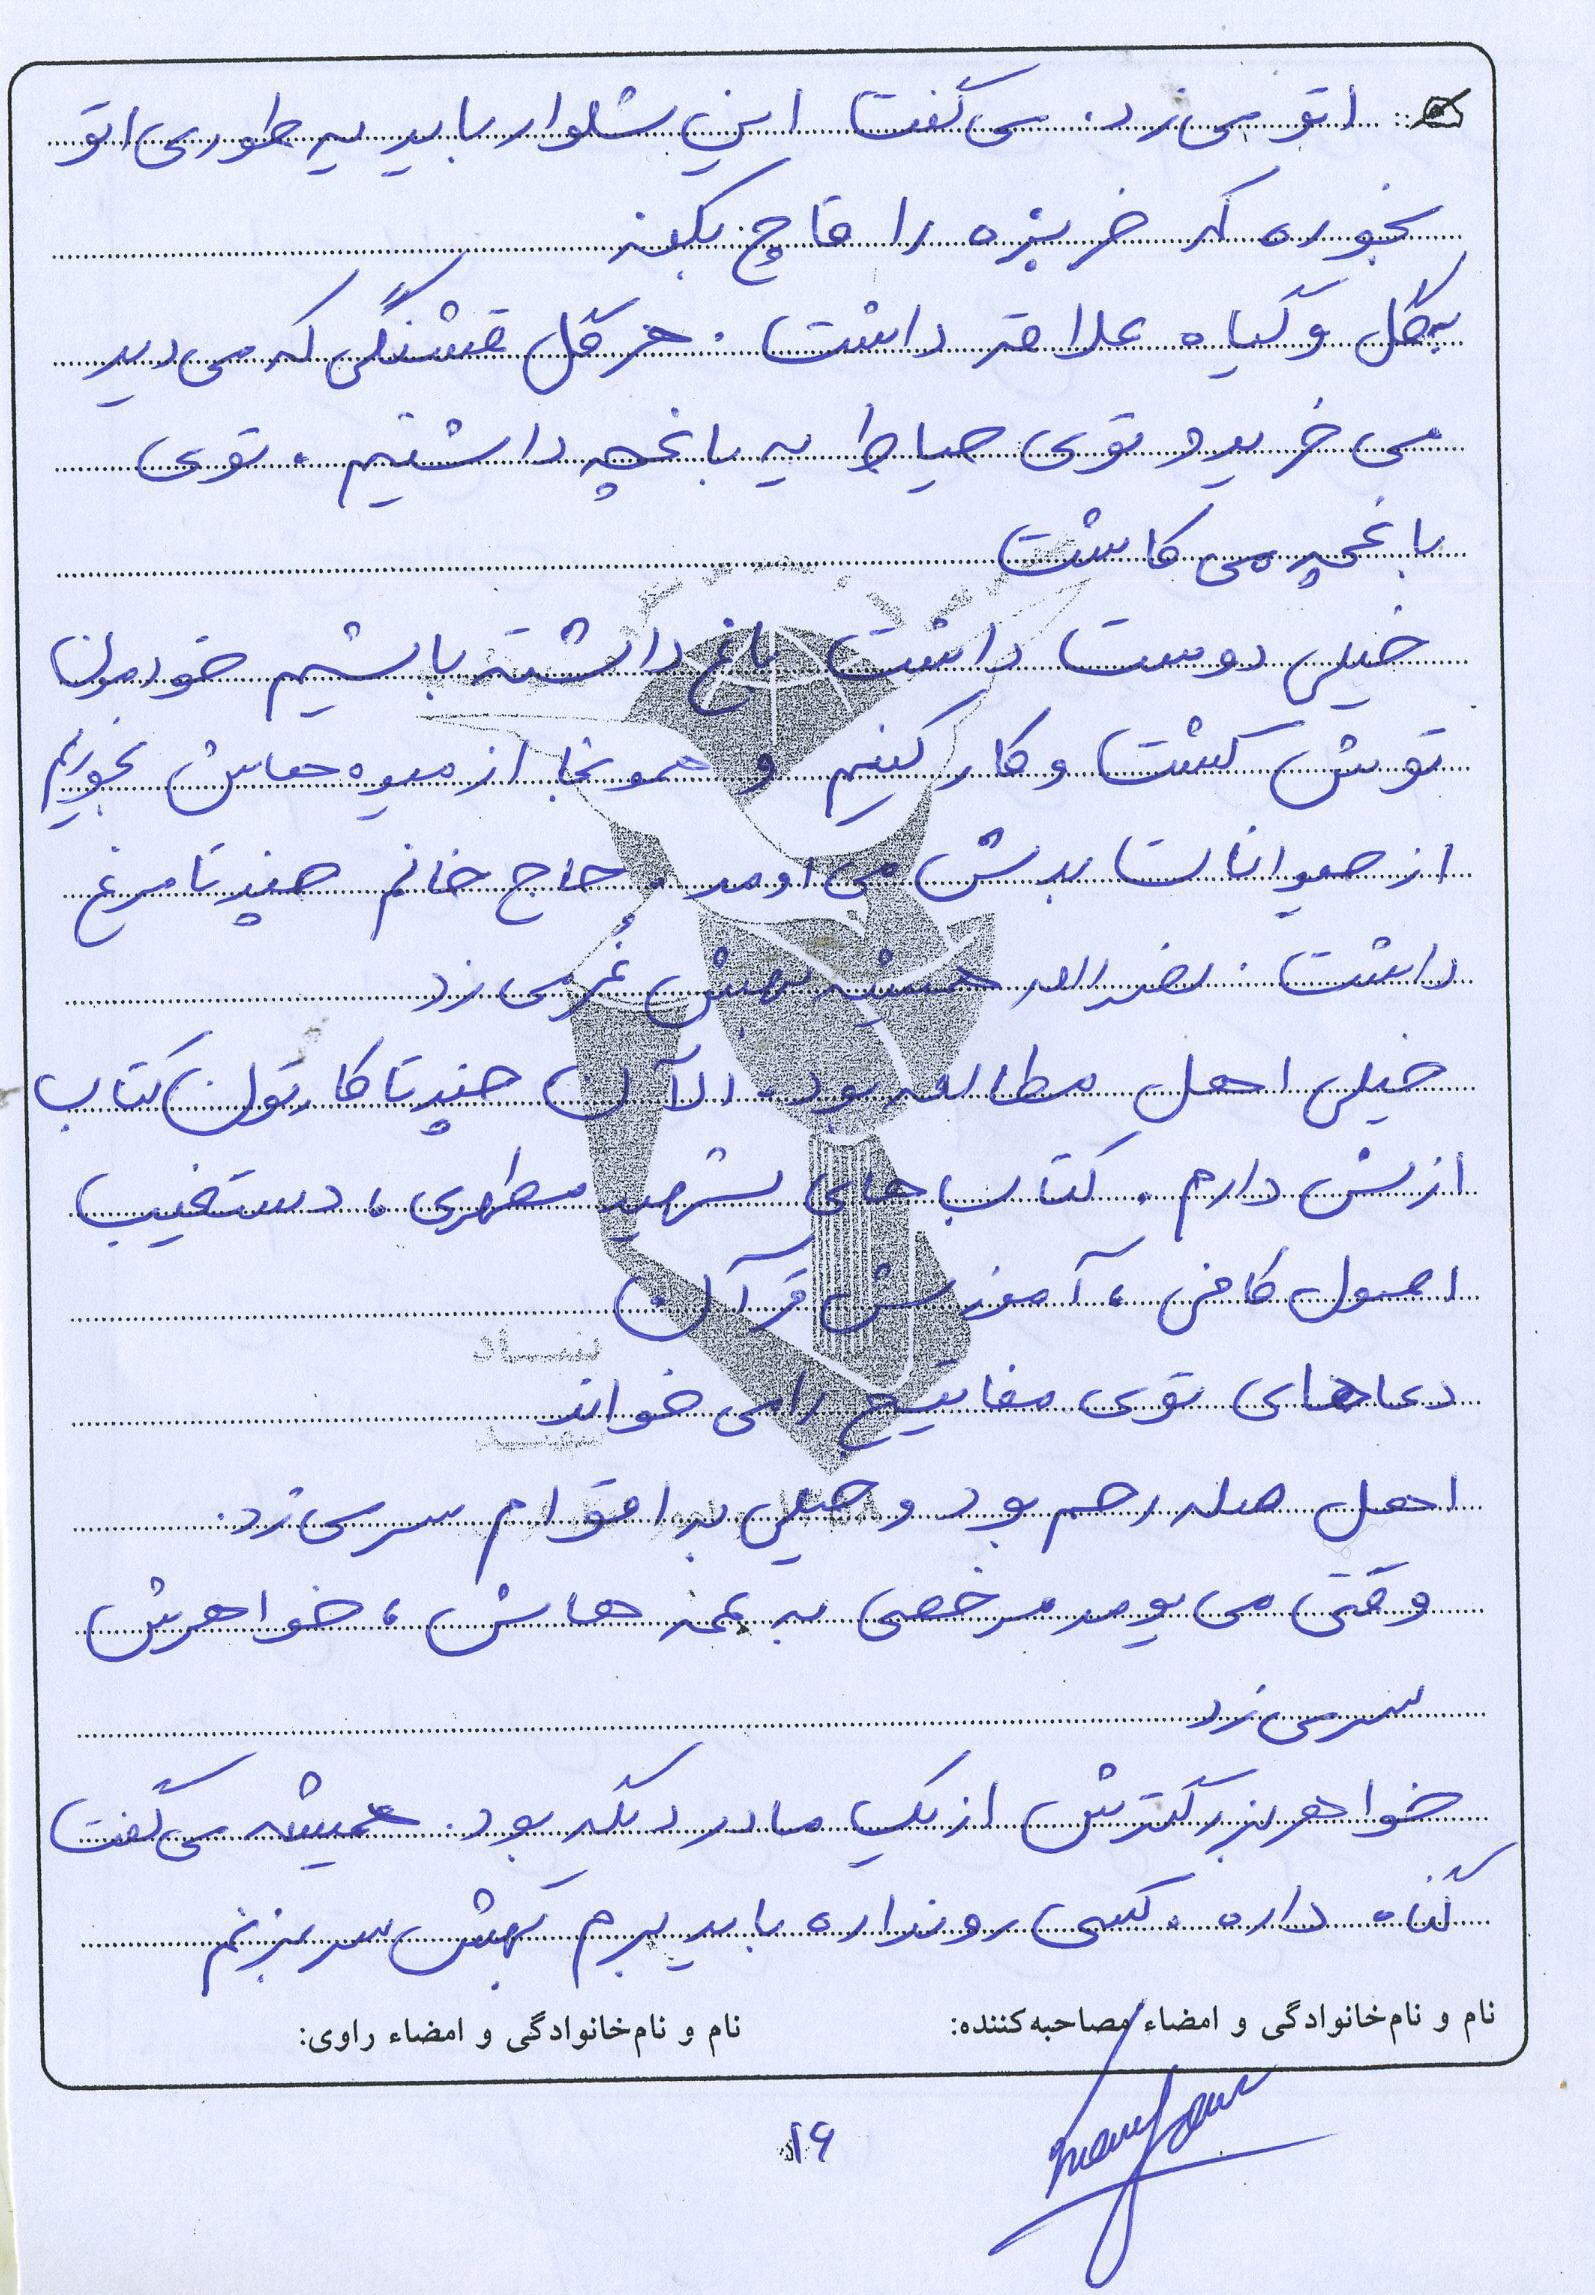 اتو می‌زد. می‌گفت این شلوار باید یه طوری اتو
بخوره که خربزه را قاچ بکنه
به گل و گیاه علاقه داشت. هر گل قشنگی که می‌دید
می‌خرید و توی حیاط یه باغچه داشتیم. توی
باغچه می‌کاشت
خیلی دوست داشت باغ داشته باشیم خودمون
توش کشت و کار کنیم و همونجا از میوه‌هاش بخوریم
از حیوانات بدش می‌اومد. حاج خانم چند تا مرغ
داشت. نصراله همیشه بهش غُر می‌زد
خیلی اهل مطالعه بود. الآن چند تا کارتون کتاب
ازش دارم. کتاب‌های شهید مطهری، دستغیب
اصول کافی، آموزش قرآن
دعاهای توی مفاتیح را می‌خواند
اهل صله رحم بود و خیلی به اقوام سر می‌زد.
وقتی می‌یومد مرخصی به عمه‌هاش، خواهرش
سر می‌زد
خواهر بزرگترش از یک مادر دیگه بود. همیشه می‌گفت
گناه داره. کسی رو نداره باید برم بهش سر بزنم
نام و نام‌خانوادگی و امضاء مصاحبه‌کننده: نام و نام‌خانوادگی و امضاء راوی:
۱۶